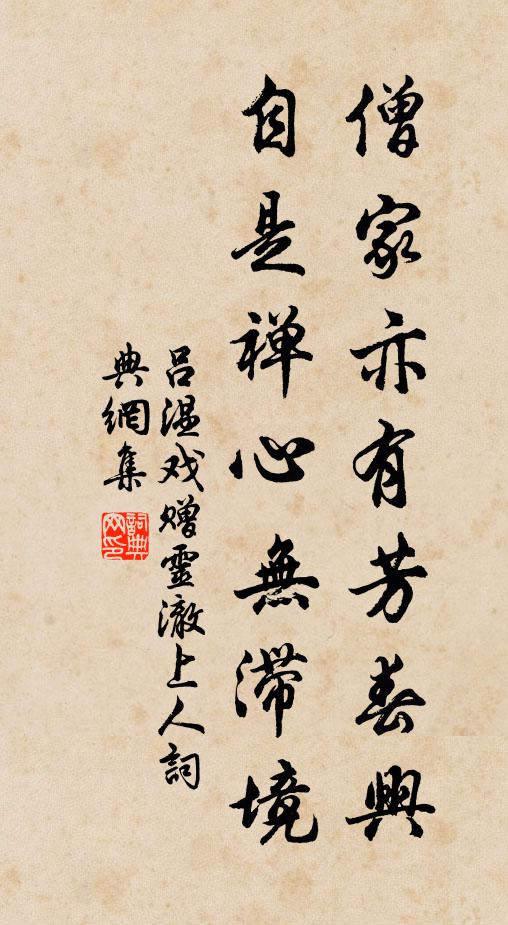 僧家亦有芳春興
自是禅心無滞境
呂温戏赠靈澈上人詞
典網集
詞典
网印